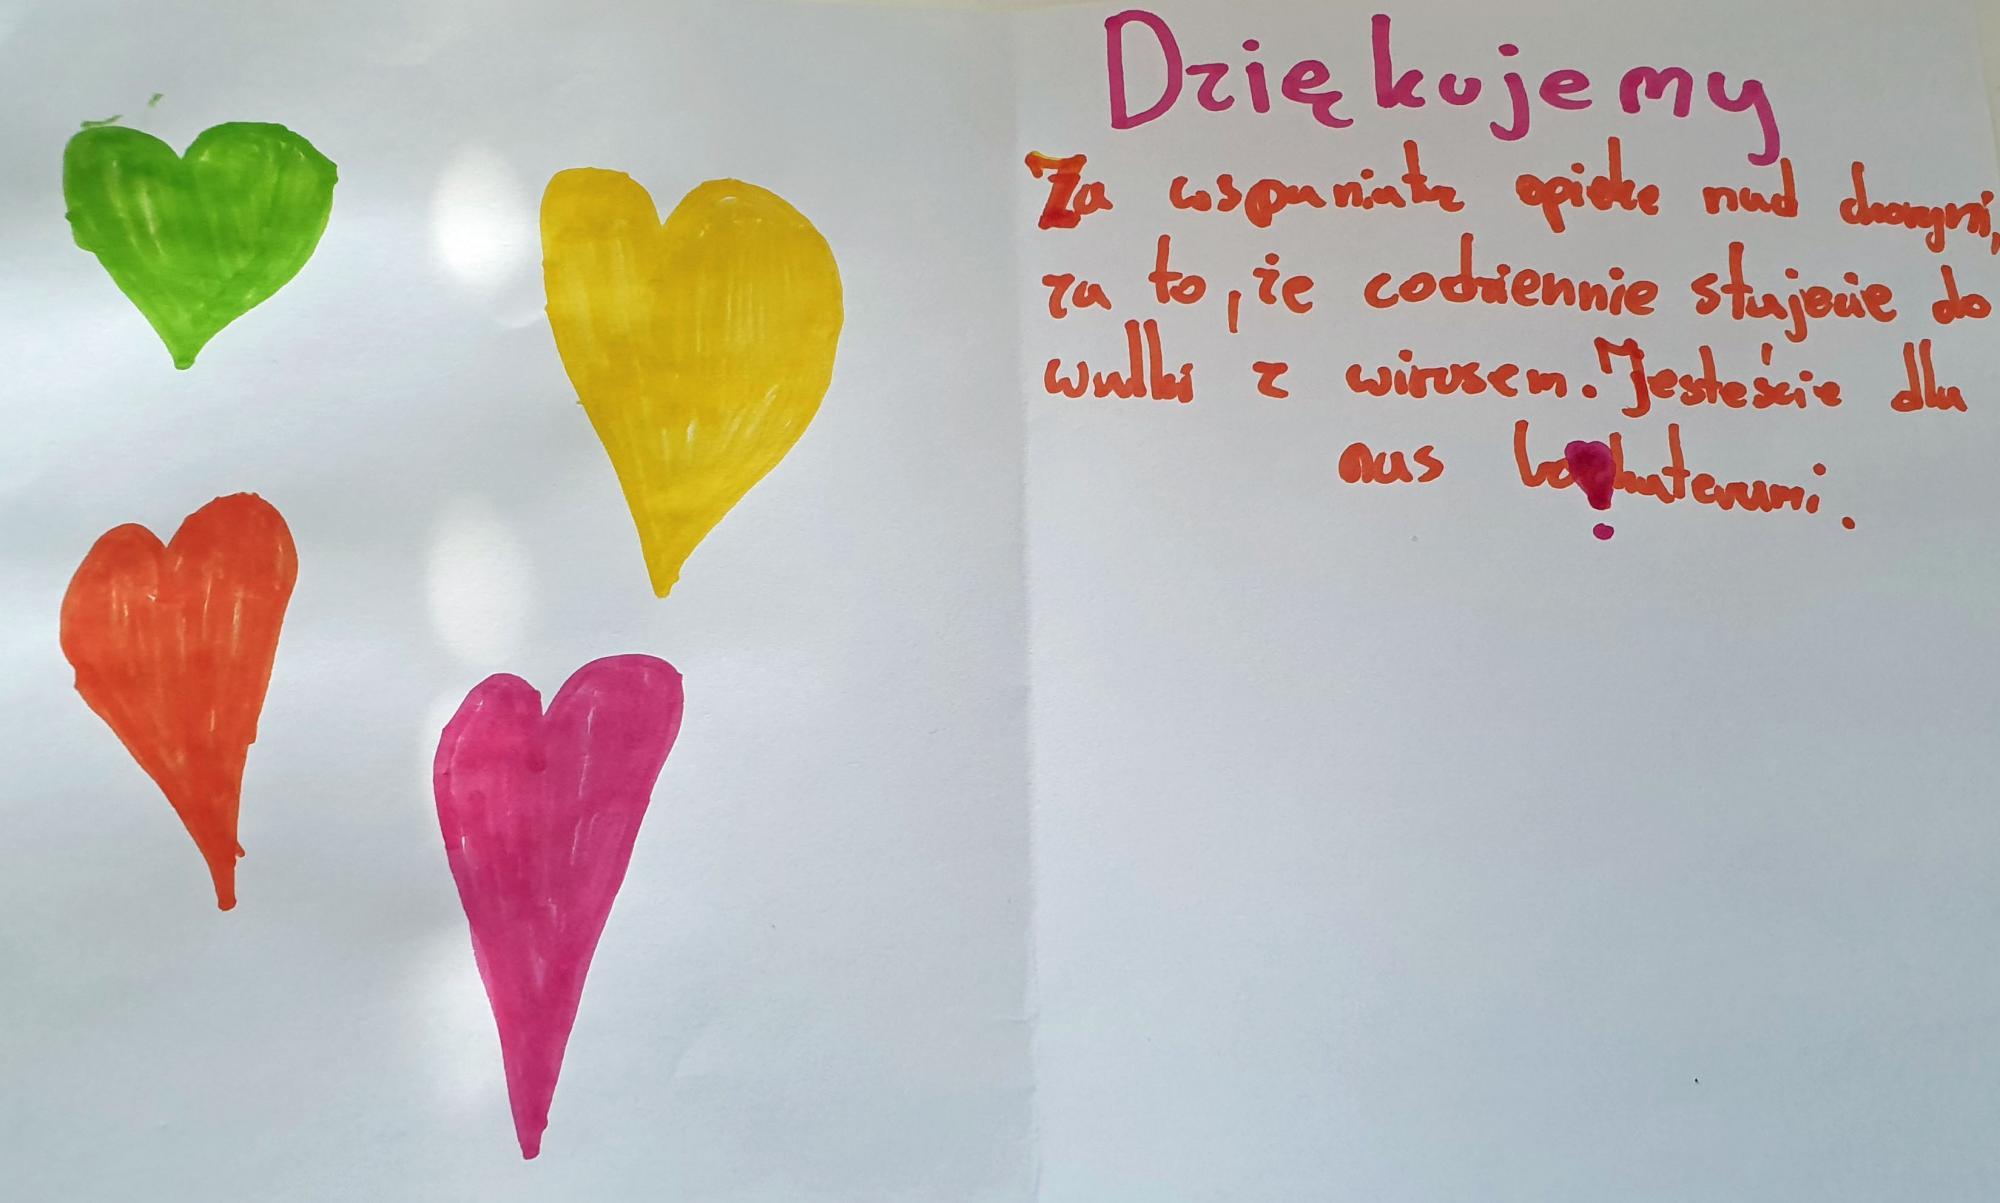 Dziękujemy
Za wspaniałą opiekę nad chorymi,
za to, że codziennie stajecie do
walki z wirusem. Jesteście dla
nas bohaterami.